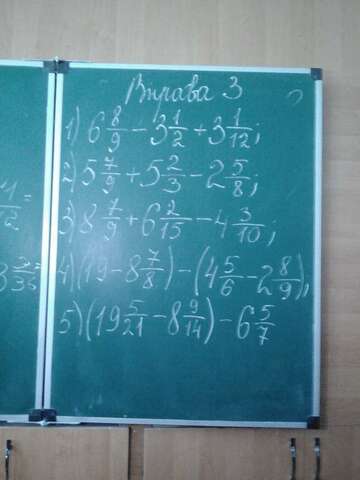 Вправа 3
1) 6 8/9 - 3 1/2 + 3 1/12;
2) 5 7/9 + 5 2/3 - 2 5/8;
3) 8 7/9 + 6 2/15 - 4 3/10;
4) (19 - 8 7/8) - (4 5/6 - 2 8/9);
5) (19 5/21 - 8 9/14) - 6 5/7